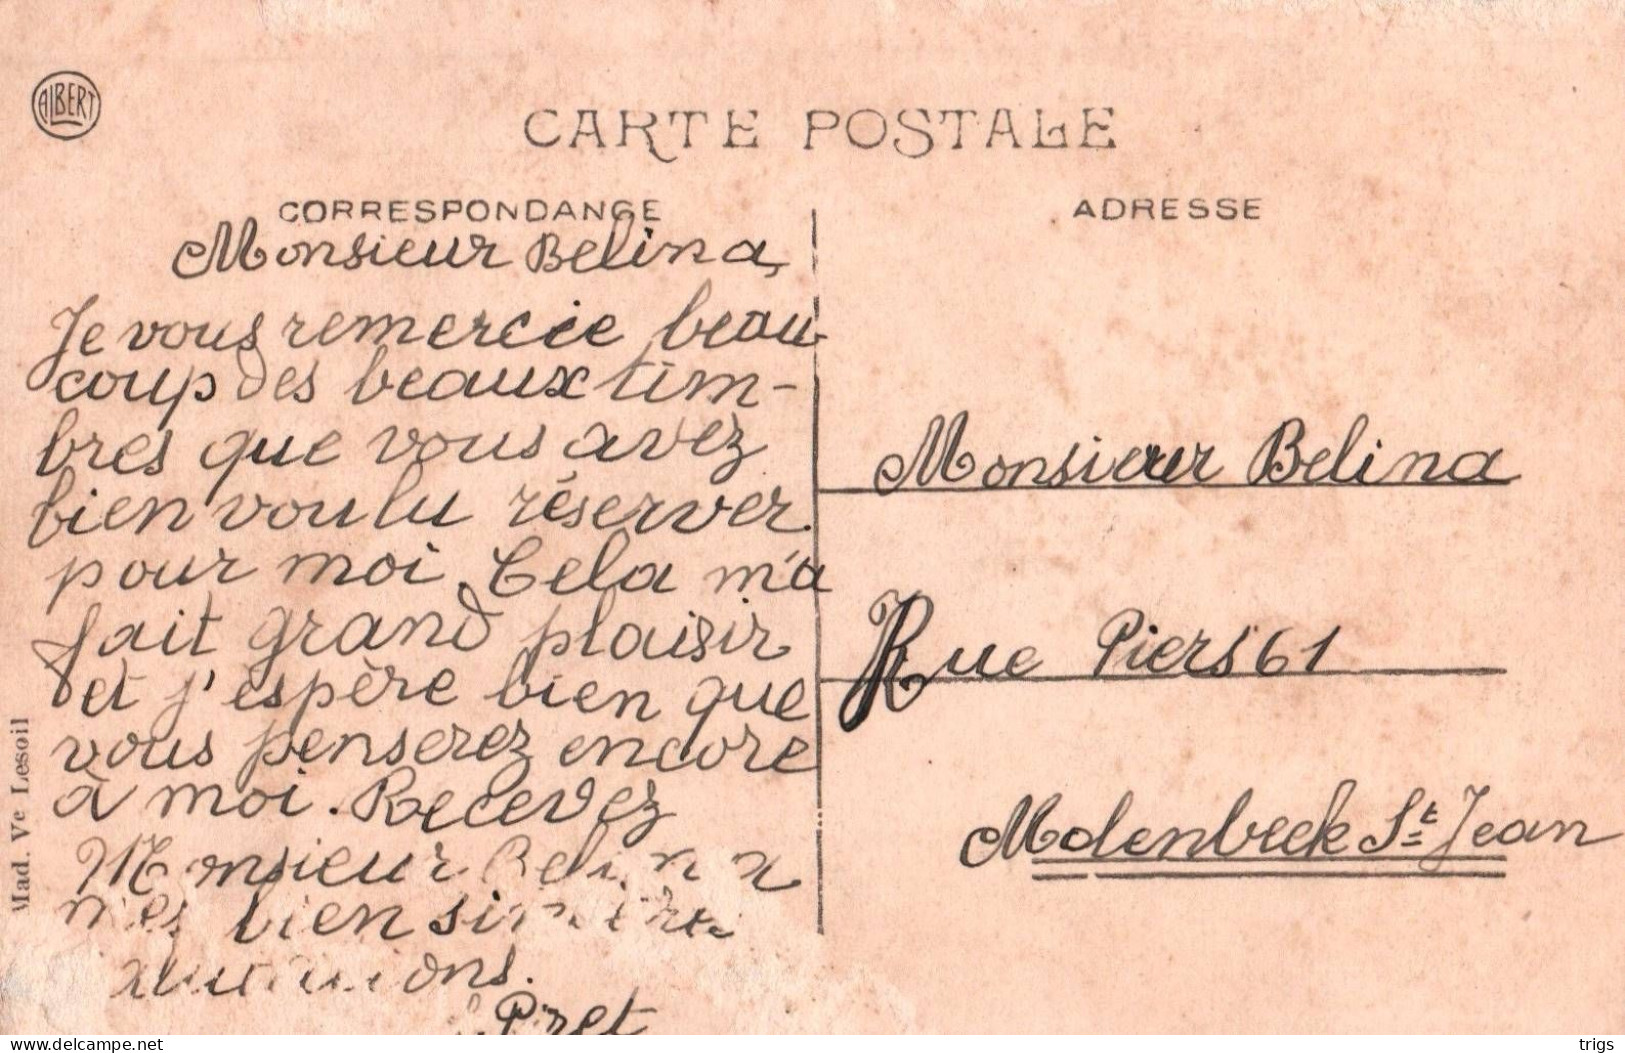 ALBERT
CARTE POSTALE
CORRESPONDANCE
Monsieur Belina,
Je vous remercie beau-
coup des beaux tim-
bres que vous avez
bien voulu réserver
pour moi. Cela m'a
fait grand plaisir
et j'espère bien que
vous penserez encore
à moi. Recevez
Monsieur Belina
mes bien sincères
salutations.
Piret
Mad. Ve Lesoil
ADRESSE
Monsieur Belina
Rue Piers 61
Molenbeek St Jean
delcampe.net
trigs